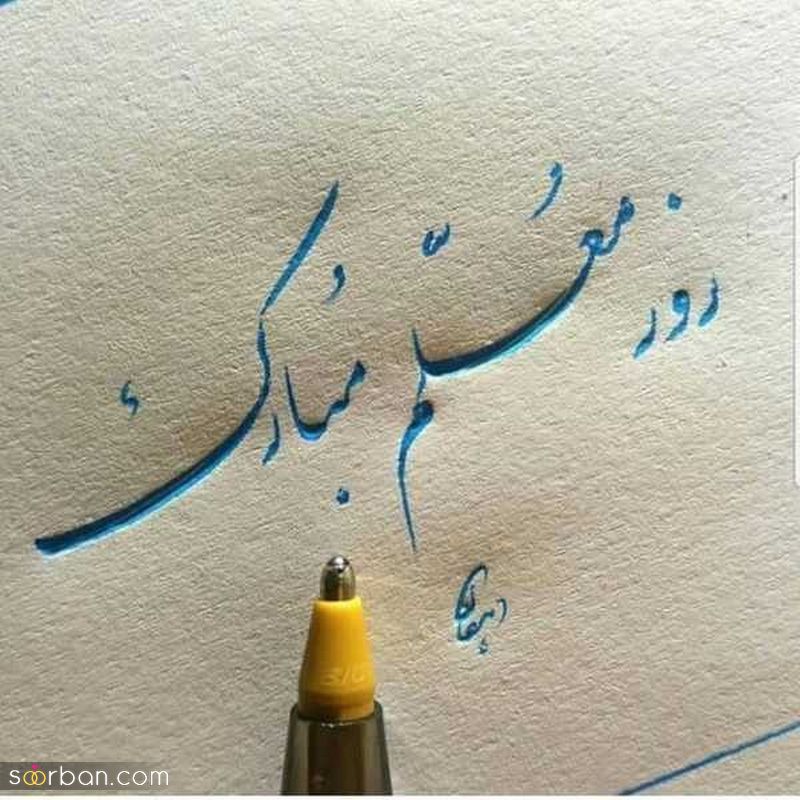 روز معُلّم مُبارک
دهقان
BIC
soorban.com